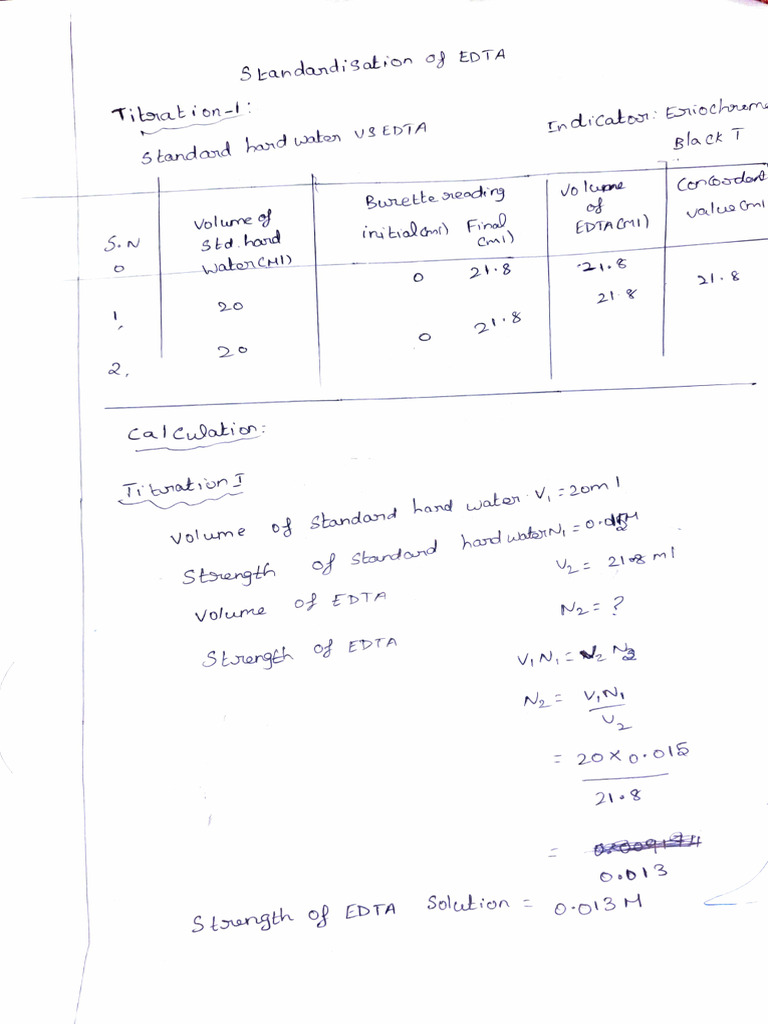 Standardisation of EDTA
Titration-1:
Standard hard water vs EDTA
Indicator: Eriochrome
Black T
S.No
Volume of Std. hard Water (Ml)
Burette reading
initial (ml) Final (ml)
Volume of EDTA (Ml)
Concordant value (ml
1, 20 0 21.8 21.8 21.8
2, 20 0 21.8 21.8
Calculation:
Titration I
Volume of Standard hard water V1 = 20ml
Strength of Standard hard water N1 =
Volume of EDTA V2 = 21.8 ml
Strength of EDTA N2 = ?
V1N1 = V2 N2
N2 = V1N1
V2
= 20 × 0.015
21.8
=
0.013
Strength of EDTA Solution = 0.013 M